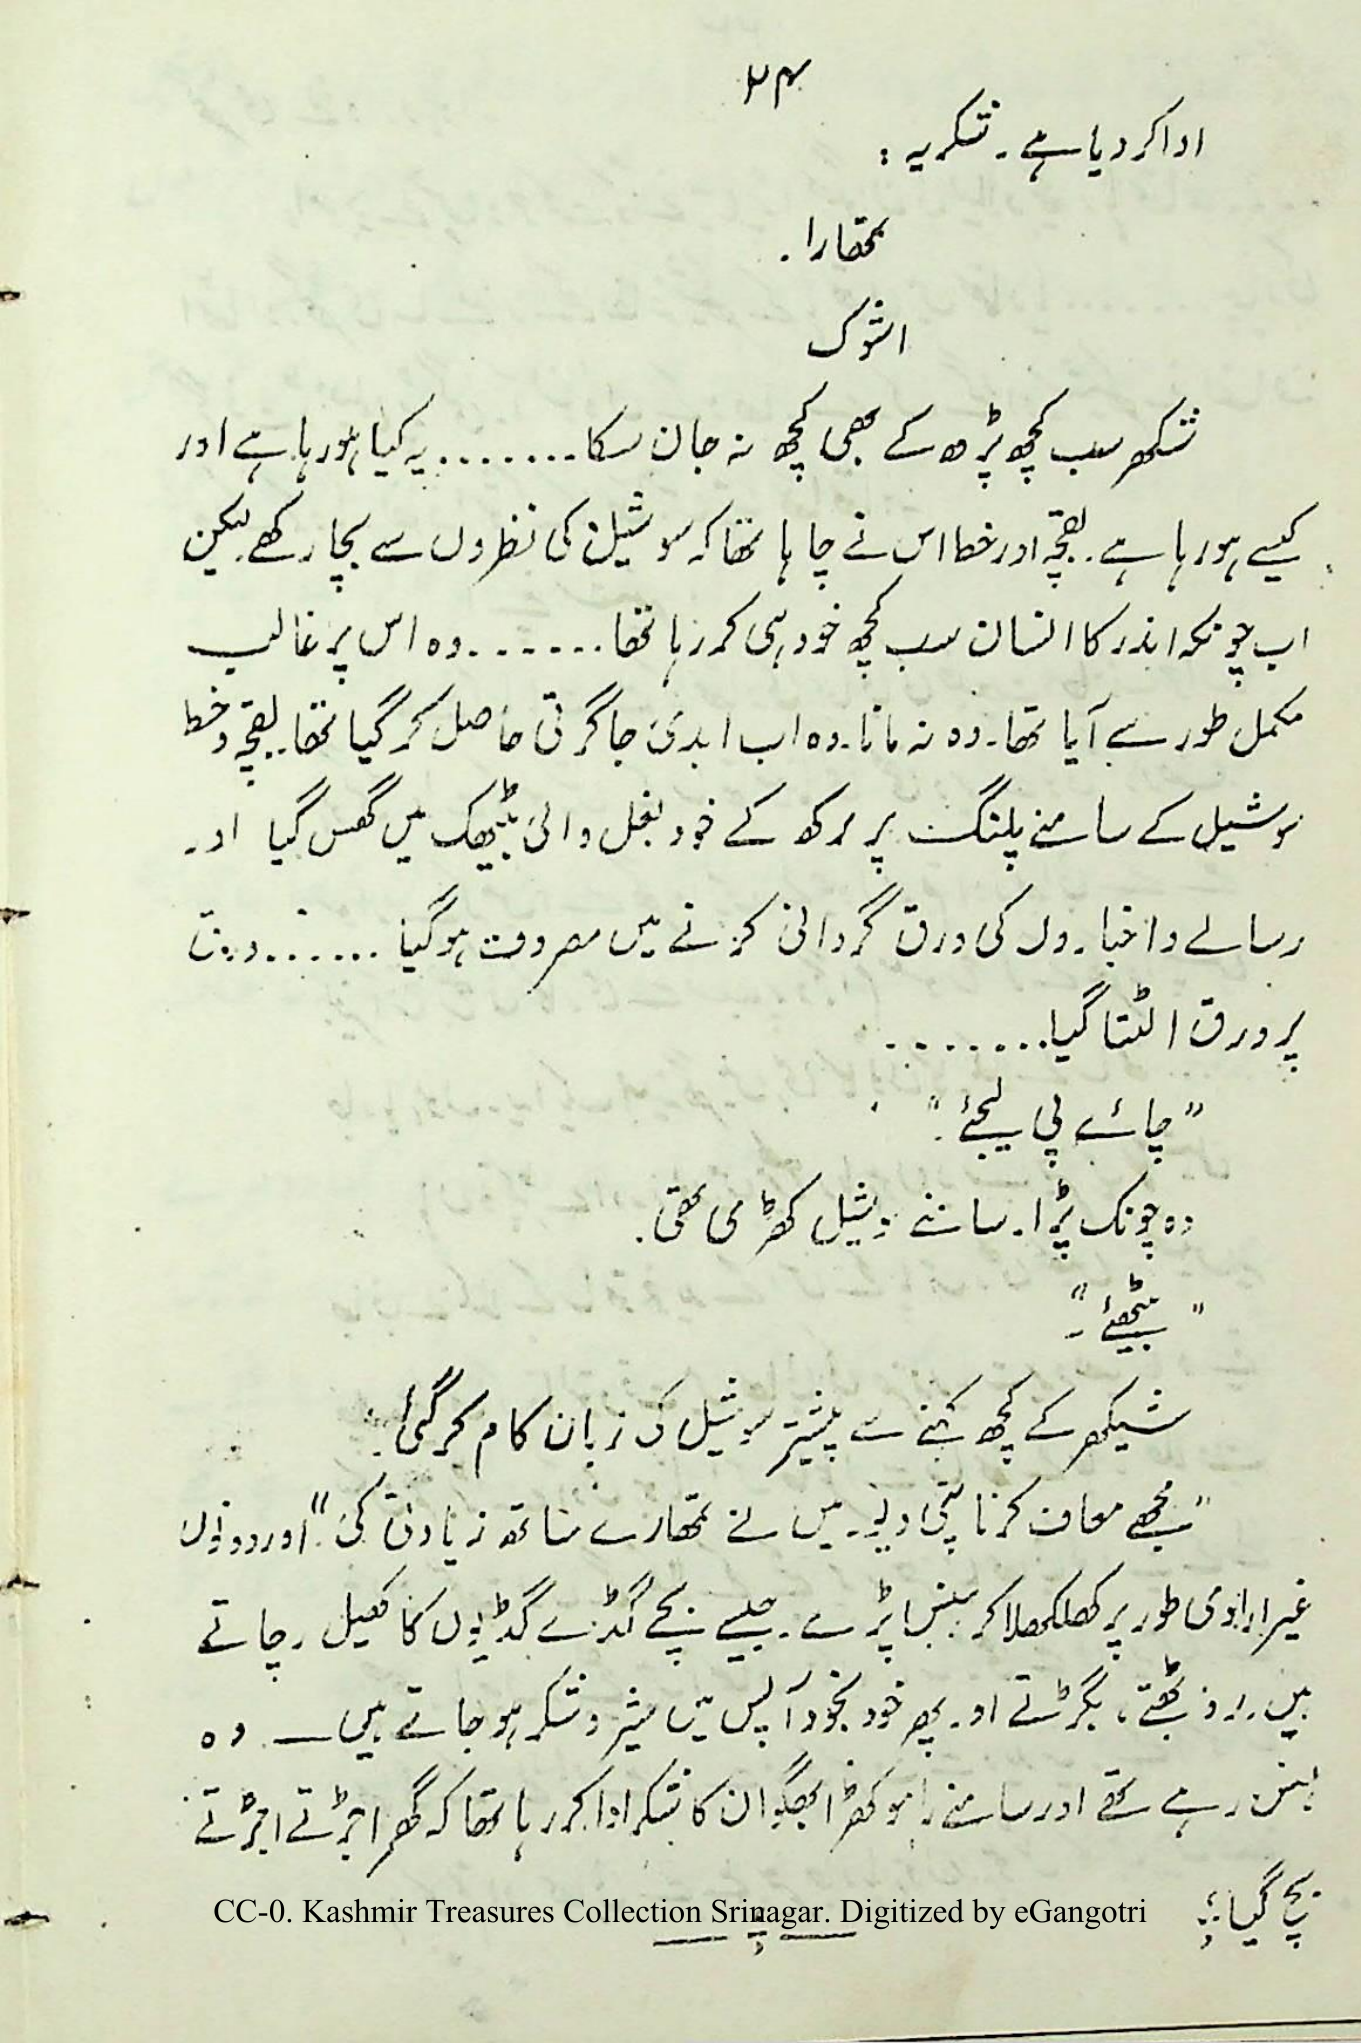 ۲۴
ادا کر دیا ہے۔ شکریہ :
تمھارا۔
اشوک
شکھر سب کچھ پڑھ کے بھی کچھ نہ جان سکا........ یہ کیا ہو رہا ہے اور
کیسے ہو رہا ہے۔ بقچہ اور خط اس نے چاہا تھا کہ سوشیل کی نظروں سے بچا رکھے۔ لیکن
اب چونکہ اندر کا انسان سب کچھ خود ہی کر رہا تھا....... وہ اس پر غالب
مکمل طور سے آیا تھا۔ وہ نہ مانا۔ وہ اب ابدی جاگرتی حاصل کر گیا تھا۔ بقچہ و خط
سوشیل کے سامنے پلنگ پر رکھ کے خود بغل والی بیٹھک میں گھس گیا اور
رسالے و اخباروں کی ورق گردانی کرنے میں مصروف ہو گیا ....... ورق
پر ورق الٹتا گیا........
"چائے پی لیجئے۔"
وہ چونک پڑا۔ سامنے سوشیل کھڑی تھی۔
"بیٹھئے۔"
شیکھر کے کچھ کہنے سے پیشتر سوشیل کی زبان کام کر گئی۔
"مجھے معاف کرنا پتی دیو۔ میں نے تمھارے ساتھ زیادتی کی"۔ اور دونوں
غیر ارادی طور پر کھلکھلا کر ہنس پڑے۔ جیسے بچے گڈے گڈیوں کا کھیل رچاتے
ہیں۔ روٹھتے، بگڑتے اور پھر خود بخود آپس میں شیر و شکر ہو جاتے ہیں — وہ
ہنس رہے تھے اور سامنے رامو کھڑا بھگوان کا شکر ادا کر رہا تھا کہ گھر اجڑتے اجڑتے
بچ گیا؛؛
CC-0. Kashmir Treasures Collection Srinagar. Digitized by eGangotri